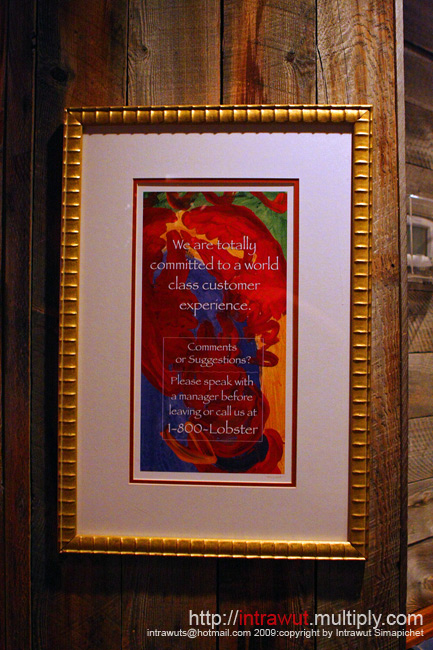 We are totally
committed to a world
class customer
experience.
Comments
or Suggestions?
Please speak with
a manager before
leaving or call us at
1-800-Lobster
http://intrawut.multiply.com
intrawuts@hotmail.com 2009:copyright by Intrawut Simapichet